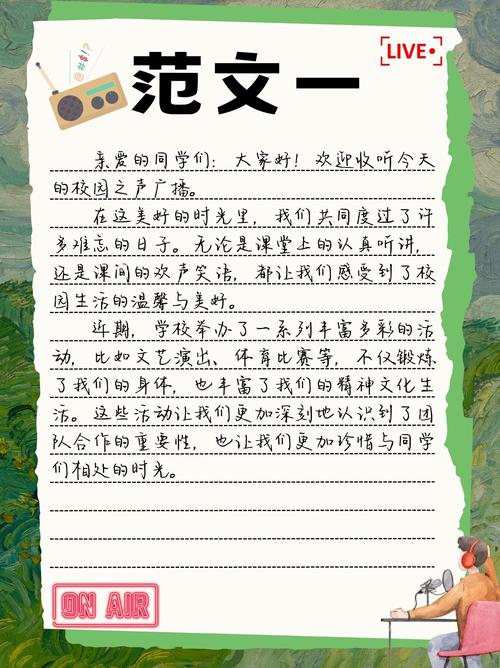 LIVE
范文一
亲爱的同学们：大家好！欢迎收听今天
的校园之声广播。
在这美好的时光里，我们共同度过了许
多难忘的日子。无论是课堂上的认真听讲，
还是课间的欢声笑语，都让我们感受到了校
园生活的温馨与美好。
近期，学校举办了一系列丰富多彩的活
动，比如文艺演出、体育比赛等，不仅锻炼
了我们的身体，也丰富了我们的精神文化生
活。这些活动让我们更加深刻地认识到了团
队合作的重要性，也让我们更加珍惜与同学
们相处的时光。
ON AIR